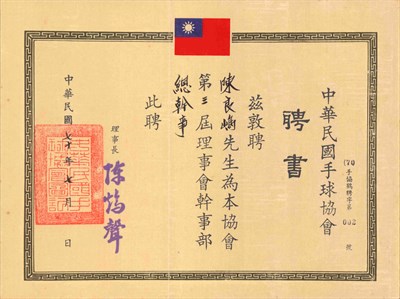 中華民國手球協會
聘書
(70手協鶴聘字第002號
茲敦聘
陳良嶠先生為本協會
第三屆理事會幹事部
總幹事
此聘
理事長
陳焜聲
中華民國七十年七月 日